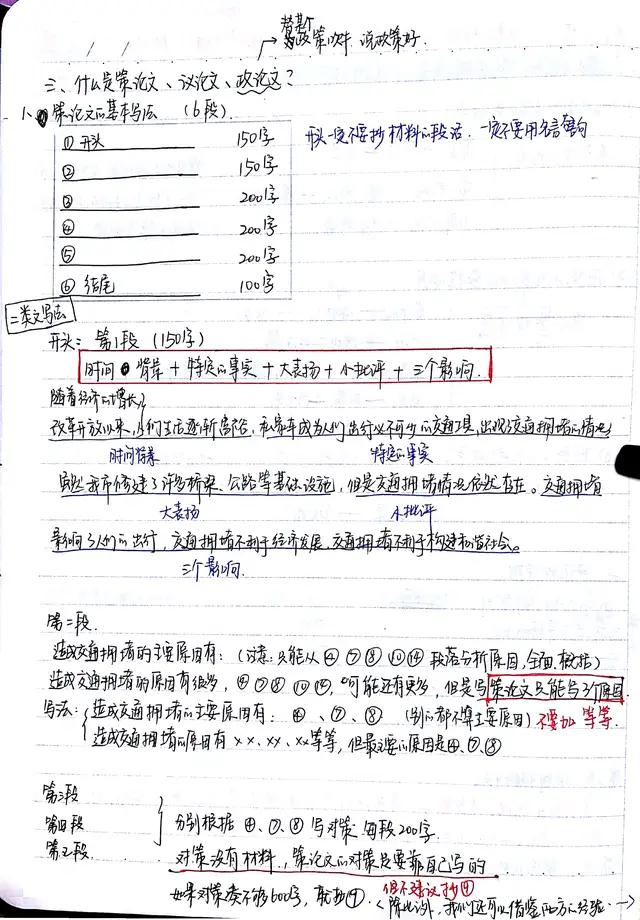 替某个
政策吹牛 说政策好.
三、什么是策论文、议论文、政论文?
1. 策论文的基本写法 (6段).
① 开头 150字
② 150字
③ 200字
④ 200字
⑤ 200字
⑥ 结尾 100字
开头一定不要抄材料的段话. 一定不要用名言警句
二类文写法
开头: 第1段 (150字)
时间 背景 + 特定的事实 + 大表扬 + 小批评 + 三个影响.
随着经济的增长,
改革开放以来,人们生活逐渐富裕, 私家车成为人们出行必不可少的交通工具,出现了交通拥堵的情况
时间背景 特定的事实
虽然我市修建了许多桥梁、公路等基础设施,但是交通拥堵情况依然存在。交通拥堵
大表扬 小批评
影响了人们的出行,交通拥堵不利于经济发展,交通拥堵不利于构建和谐社会。
三个影响.
第二段.
造成交通拥堵的主要原因有: (注意:只能从④⑦⑧⑩⑭段落分析原因,全面.概括)
造成交通拥堵的原因有很多, ④⑦⑧⑩⑭, 可能还有更多, 但是写策论文只能写3个原因
写法: 造成交通拥堵的主要原因有: ④、⑦、⑧ (别的都不算主要原因) 不要加等等.
造成交通拥堵的原因有××、××、××等等,但最主要的原因是④、⑦、⑧
第三段
第四段
第五段
分别根据 ④、⑦、⑧ 写对策 每段200字.
对策没有材料, 策论文的对策是要靠自己写的
但不建议抄
如果对策凑不够600字, 就抄
(除此以外, 我们还可以借鉴西方的经验.